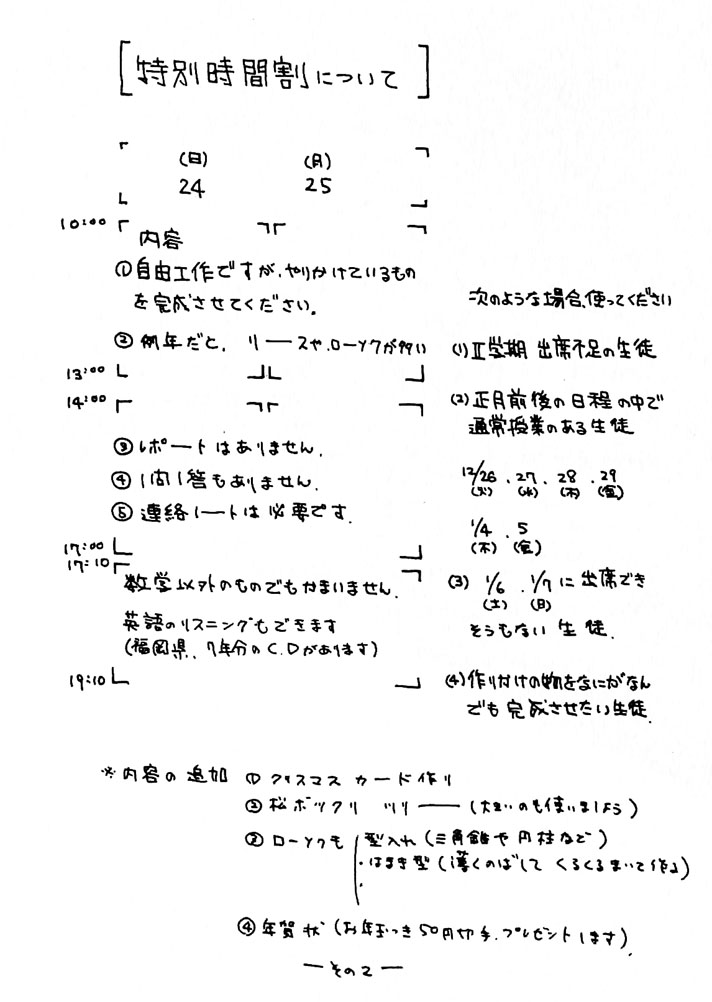 [特別時間割について]
(日) (月)
24 25
10:00
内容
①自由工作ですが、やりかけているもの
を完成させてください。
②例年だと、リースや、ローソクが多い
13:00
14:00
③レポートはありません。
④1問1答もありません。
⑤連絡ノートは必要です。
17:00
17:10
数学以外のものでもかまいません。
英語のリスニングもできます
(福岡県、7年分のC.Dがあります)
19:10
次のような場合、使ってください
(1)Ⅱ学期 出席不足の生徒
(2)正月前後の日程の中で
通常授業のある生徒
12/26、27、28、29
(火) (水) (木) (金)
1/4、5
(木) (金)
(3) 1/6、1/7に出席でき
(土) (日)
そうもない生徒。
(4)作り付けの物をなにがなん
でも完成させたい生徒。
※内容の追加 ①クリスマスカード作り
②松ボックリ ツリー(大きいのも使いましょう)
③ローソクも 型入れ(三角錐や円柱など)
・はまき型(薄くのばして くるくるまいて作る)
・
④年賀状(お年玉つき50円切手、プレゼントします)
―その2―